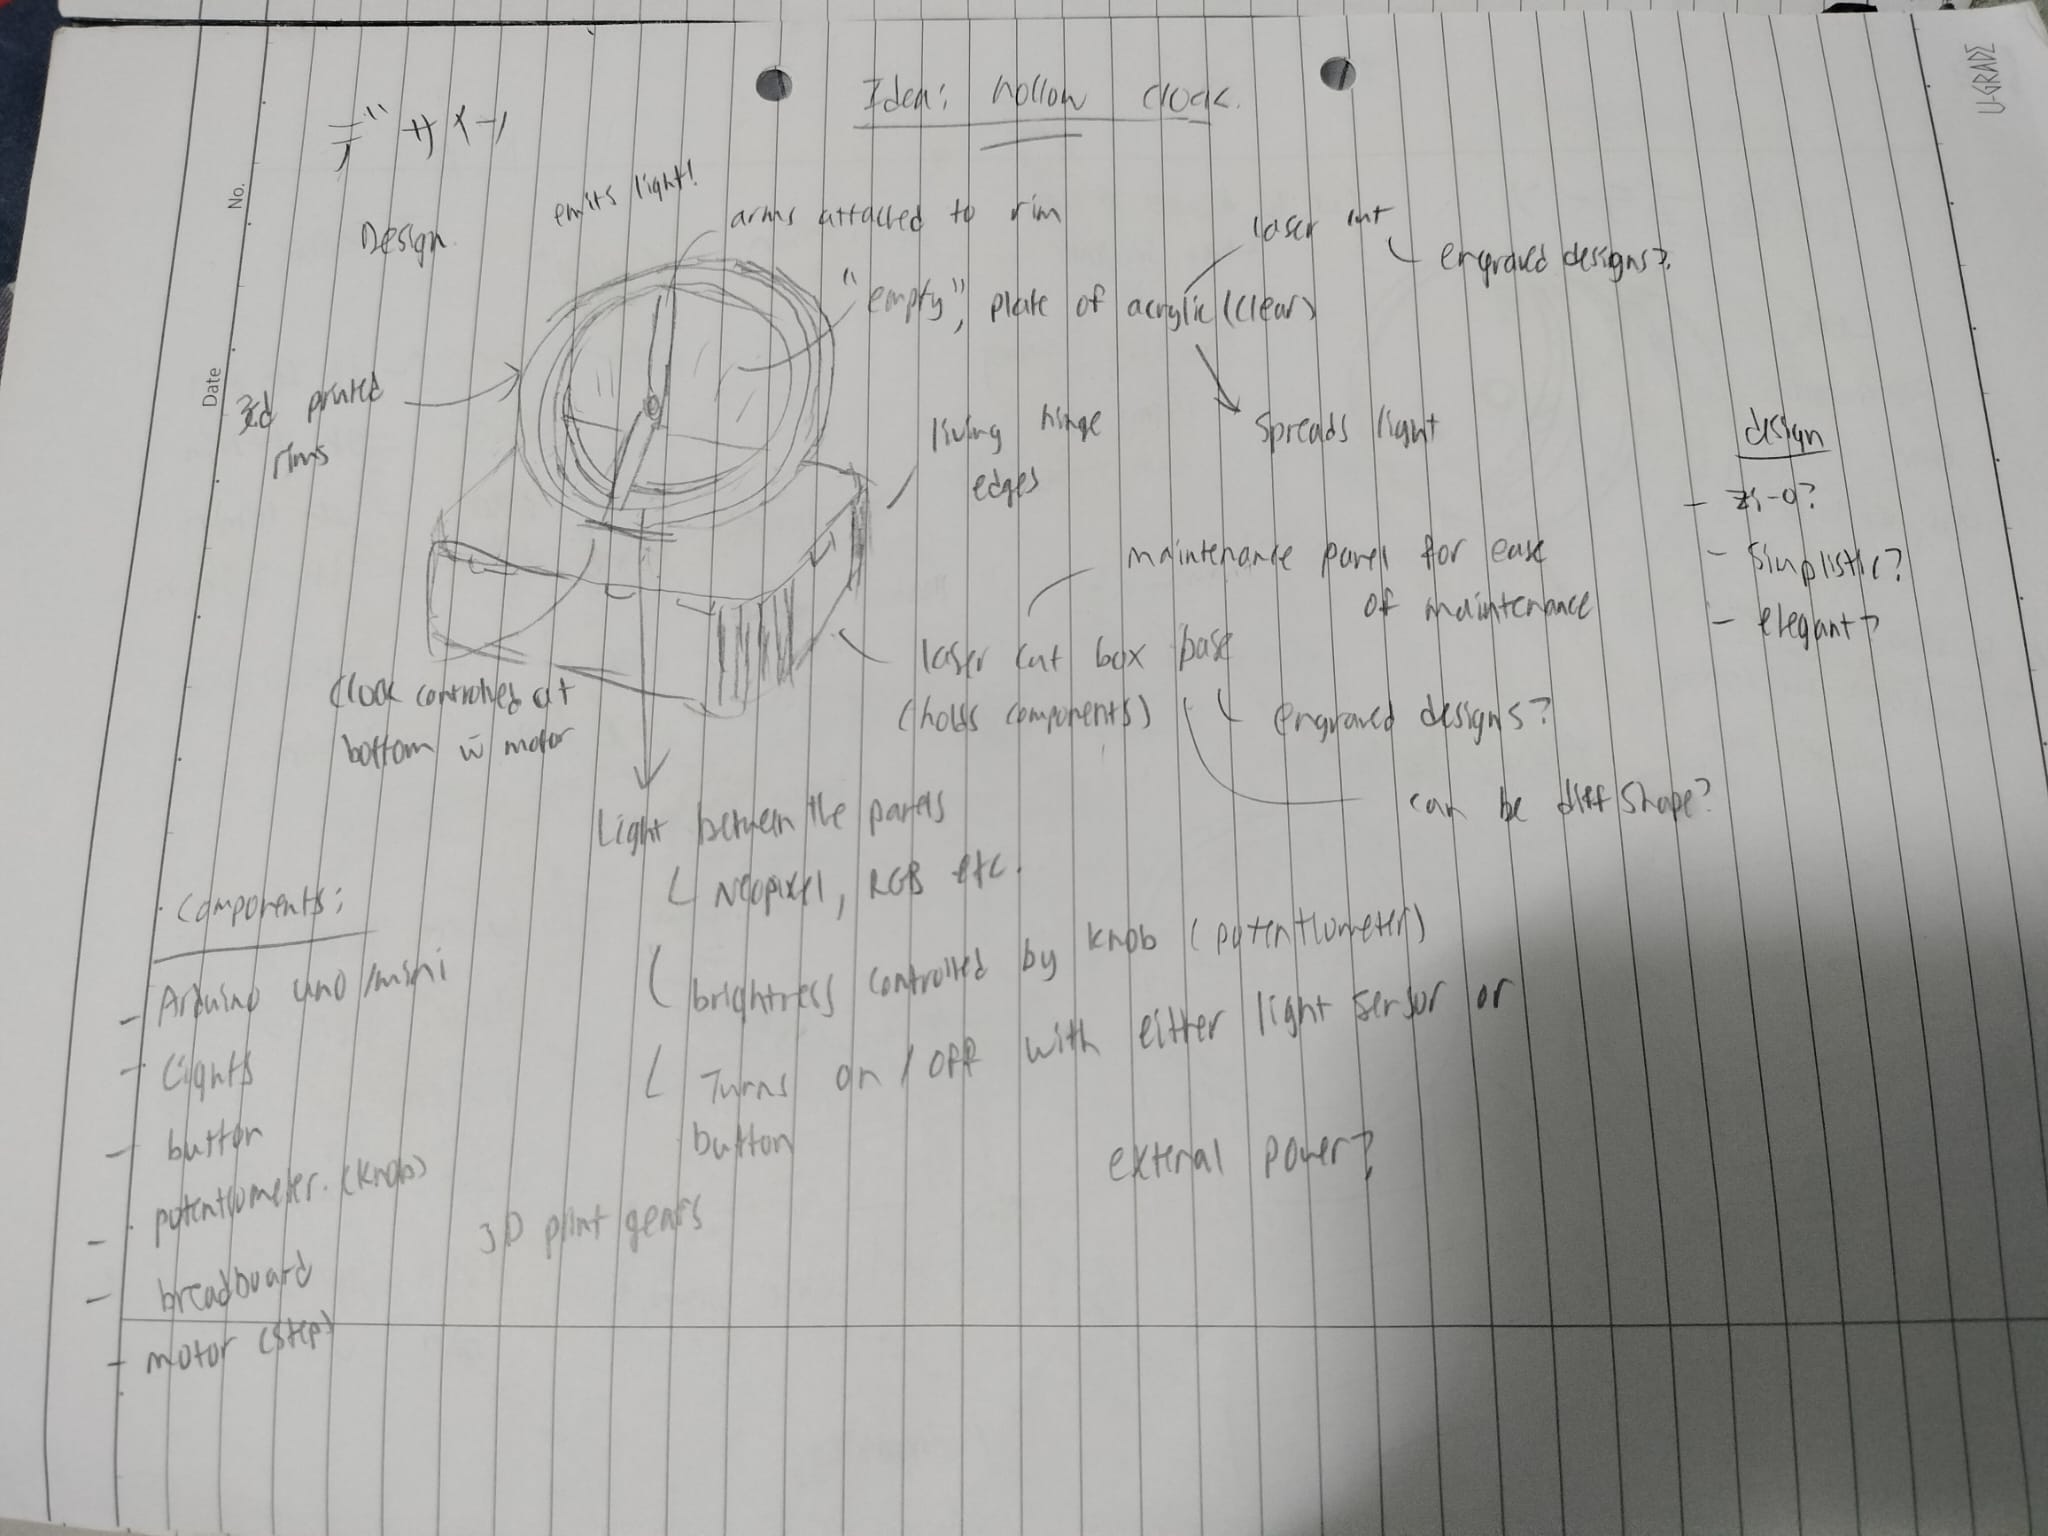 U-GRADE
Idea: hollow clock.
No.
Date
Design
emits light!
arms attached to rim
laser cut
engraved designs?
"empty", plate of acrylic (clear)
3d printed
rims
living hinge
edges
spreads light
design
- zi-o?
- simplistic?
- elegant?
maintenance panel for ease
of maintenance
laser cut box base
(holds components)
engraved designs?
can be diff shape?
Clock controlled at
bottom w motor
Light between the panels
Neopixel, RGB etc.
brightness controlled by knob (potentiometer)
Turns on / off with either light sensor or
button
external power?
Components:
- Arduino uno /mini
- Lights
- button
- potentiometer. (knob)
- breadboard
- motor (step)
3D print gears